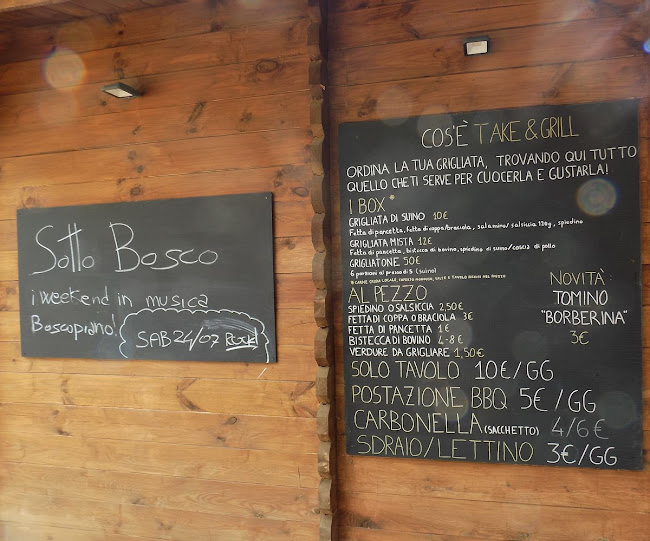 Sotto Bosco
i weekend in musica
Boscopiano!
SAB 24/07 Rock!
COS'È TAKE & GRILL
ORDINA LA TUA GRIGLIATA, TROVANDO QUI TUTTO
QUELLO CHE TI SERVE PER CUOCERLA E GUSTARLA!
I BOX *
GRIGLIATA DI SUINO 10€
Fetta di pancetta, fetta di coppa/braciola, salamino/salsiccia 120g, spiedino
GRIGLIATA MISTA 12€
Fetta di pancetta, bistecca di bovino, spiedino di suino/coscia di pollo
GRIGLIATONE 50€
6 porzioni al prezzo di 5 (suino)
AL PEZZO
SPIEDINO O SALSICCIA 2,50€
FETTA DI COPPA O BRACIOLA 3€
FETTA DI PANCETTA 1€
BISTECCA DI BOVINO 4-8€
VERDURE DA GRIGLIARE 1,50€
NOVITÀ
TOMINO
"BORBERINA"
3€
SOLO TAVOLO 10€/GG
POSTAZIONE BBQ 5€/GG
CARBONELLA (SACCHETTO) 4/6€
SDRAIO/LETTINO 3€/GG